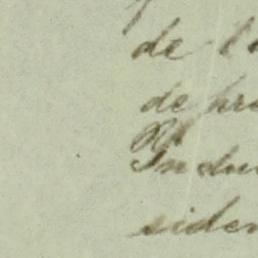 de l
de pre
Indu
siden